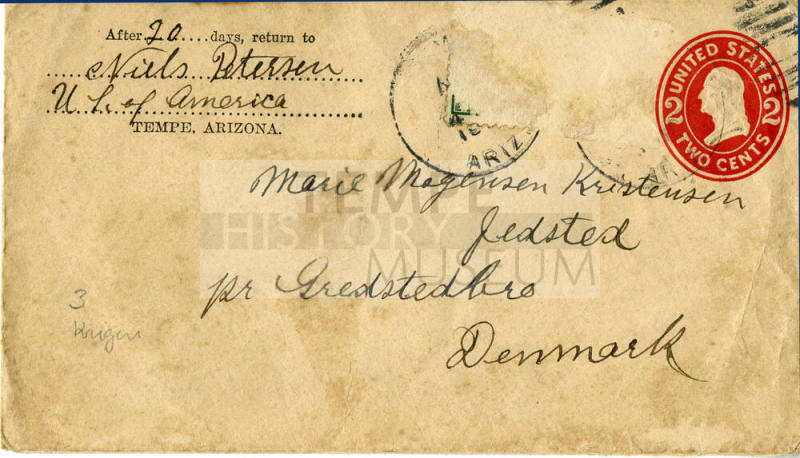 After 20 days, return to
Niels Petersen
U.S. of America
TEMPE, ARIZONA.
ARIZ
UNITED STATES
2 2
TWO CENTS
Marie Mogensen Kristensen
Jedsted
pr Gredstedbro
Denmark
3
TEMPE
HISTORY
MUSEUM